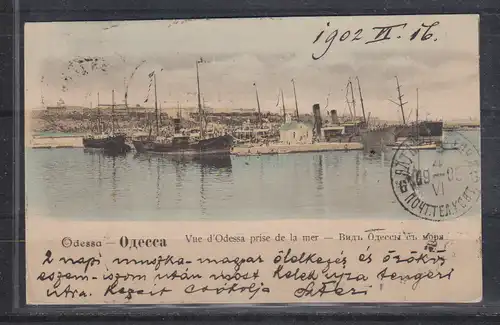 1902 VI. 16.
Odessa – Одесса
Vue d'Odessa prise de la mer – Видъ Одессы съ моря
2 napi muszka-magyar ölelkezés és örökös
eszem-iszom után most kelek újra tengeri
útra. Kezeit csókolja
ПОЧТ.ТЕЛ.КОНТ.